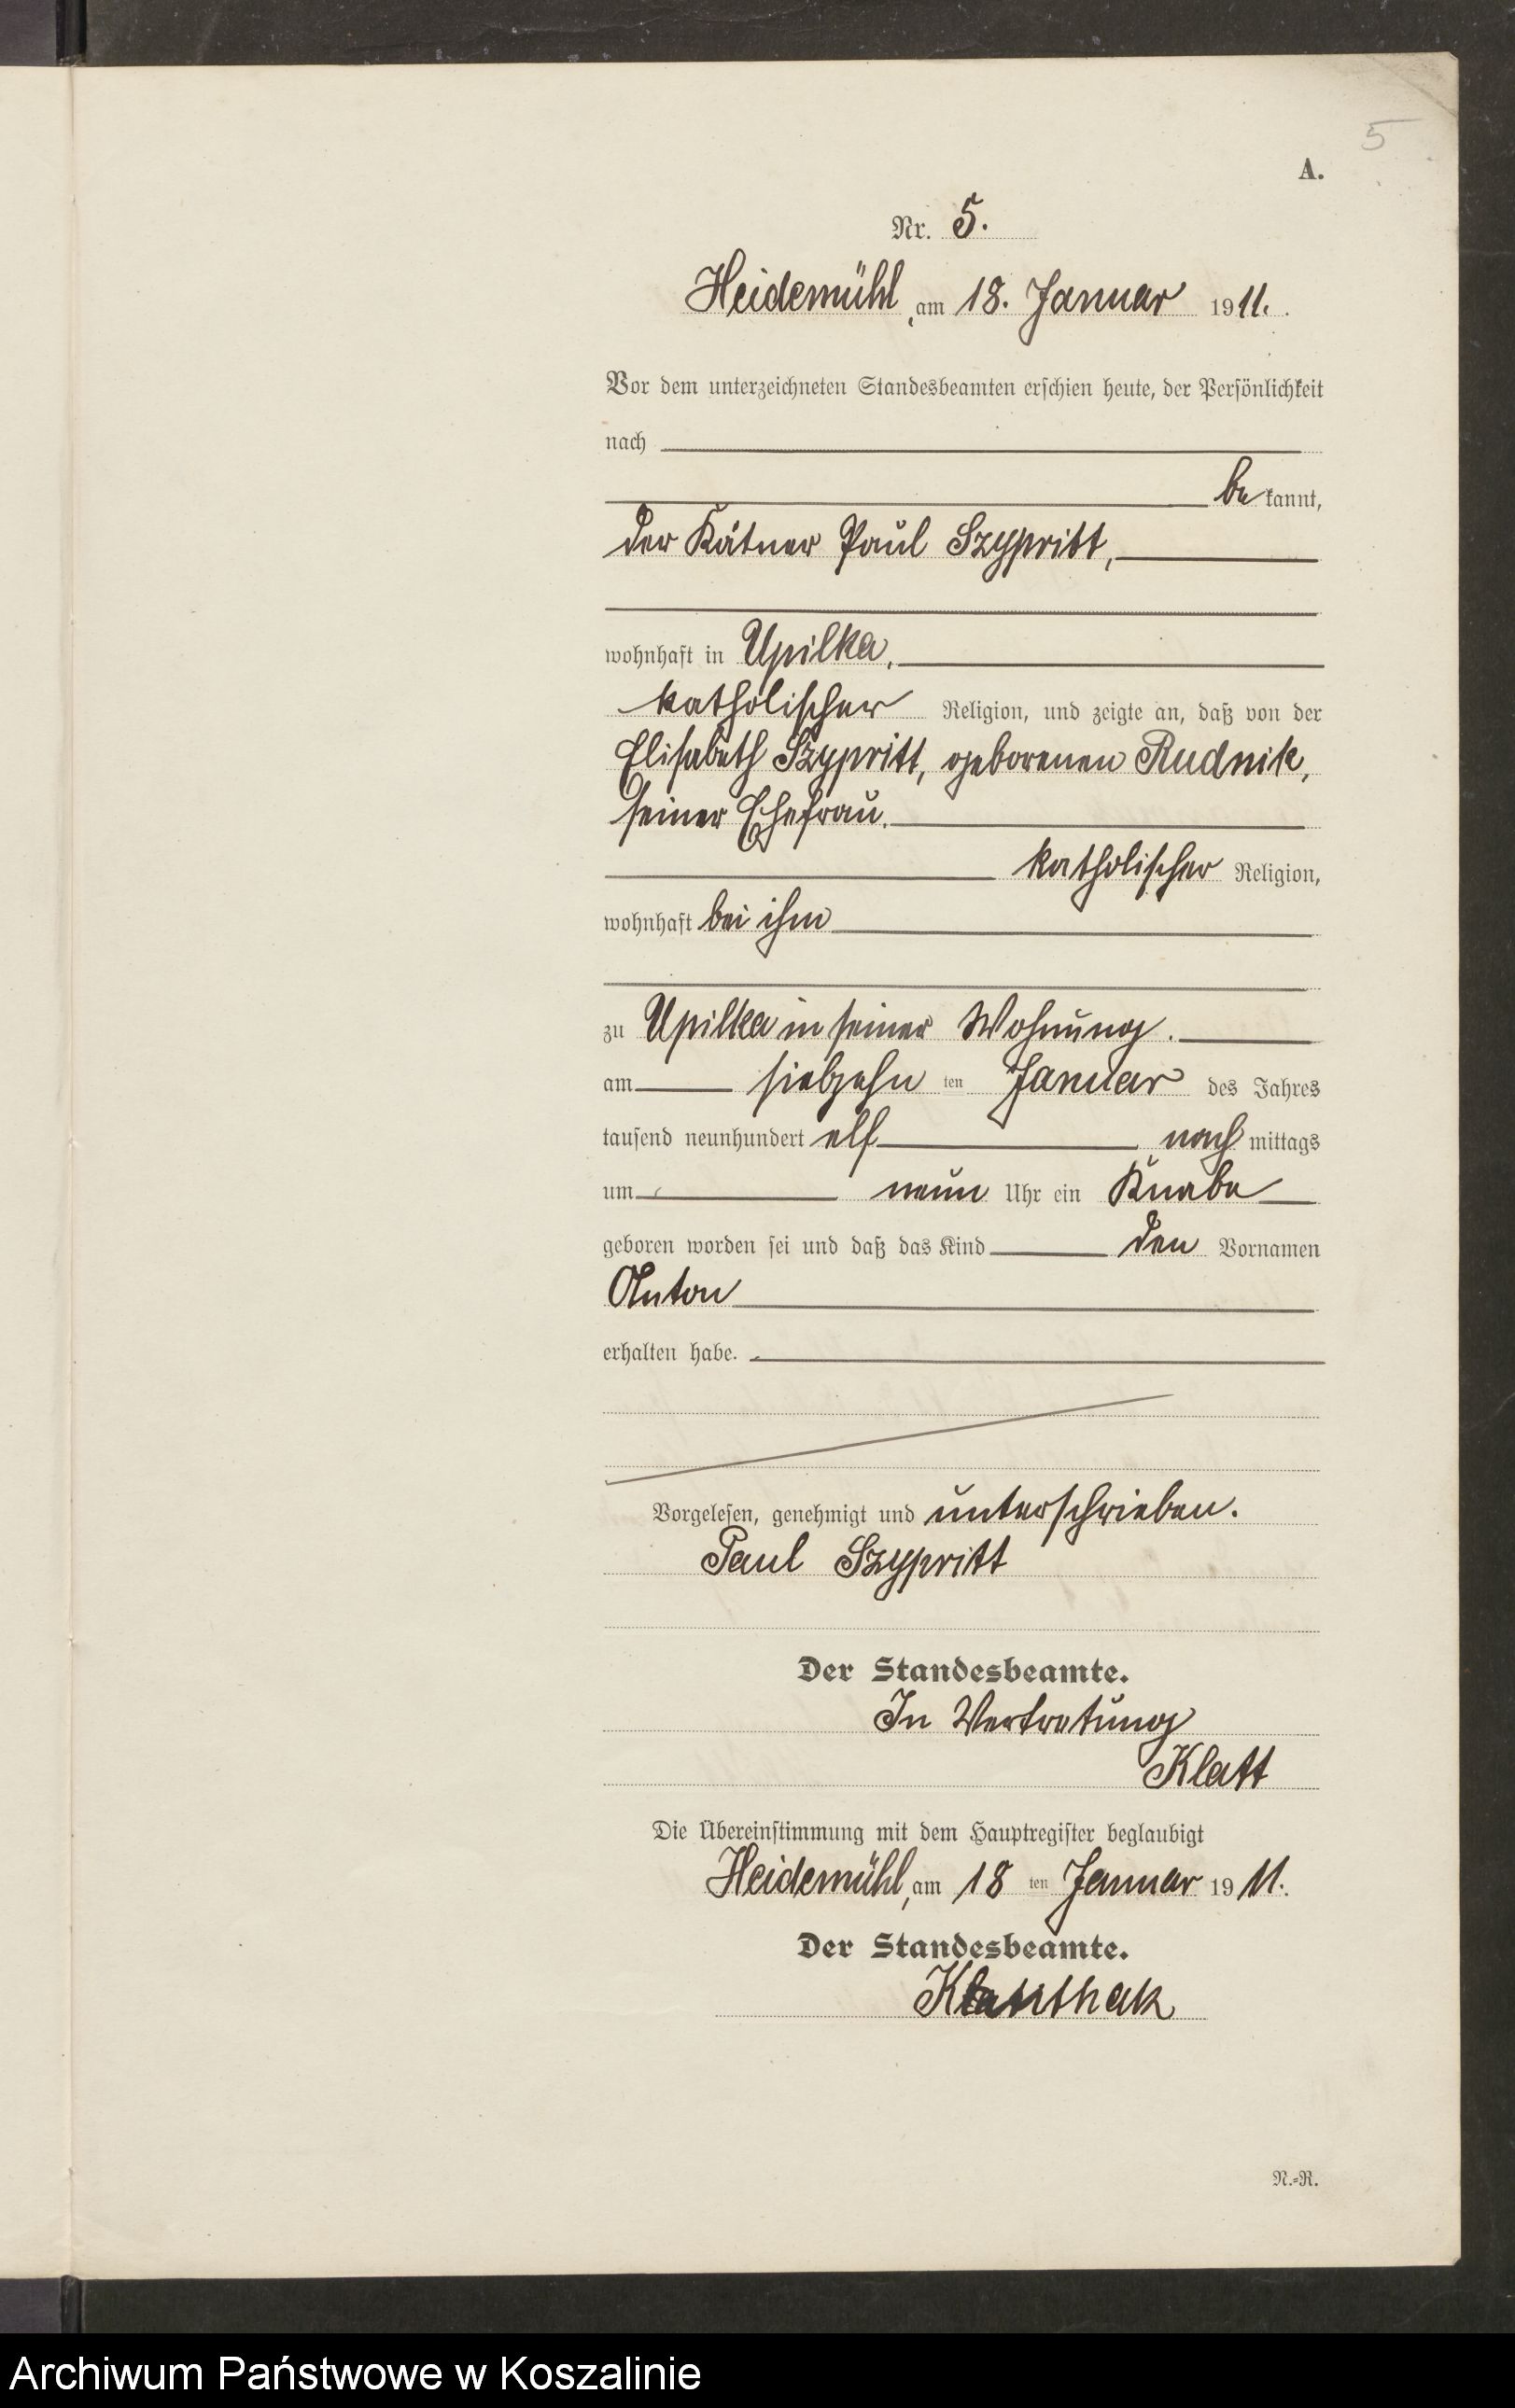 5
A.
Nr. 5.
Heidemühl, am 18. Januar 1911.
Vor dem unterzeichneten Standesbeamten erschien heute, der Persönlichkeit
nach
bekannt,
der Kätner Paul Szypritt,
wohnhaft in Upilka,
katholischer Religion, und zeigte an, daß von der
Elisabeth Szypritt, geborenen Rudnik,
seiner Ehefrau,
katholischer Religion,
wohnhaft bei ihm
zu Upilka in seiner Wohnung.
am siebzehn ten Januar des Jahres
tausend neunhundert elf nachmittags
um neun Uhr ein Knabe
geboren worden sei und daß das Kind den Vornamen
Anton
erhalten habe.
Vorgelesen, genehmigt und unterschrieben.
Paul Szypritt
Der Standesbeamte.
In Vertretung
Klatt
Die Übereinstimmung mit dem Hauptregister beglaubigt
Heidemühl, am 18 ten Januar 1911.
Der Standesbeamte.
N.=R.
Archiwum Państwowe w Koszalinie